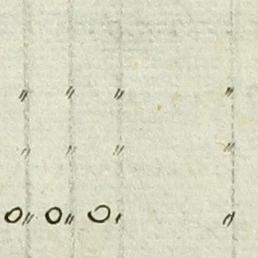 " " " "
" " " "
0" 0" 0, "